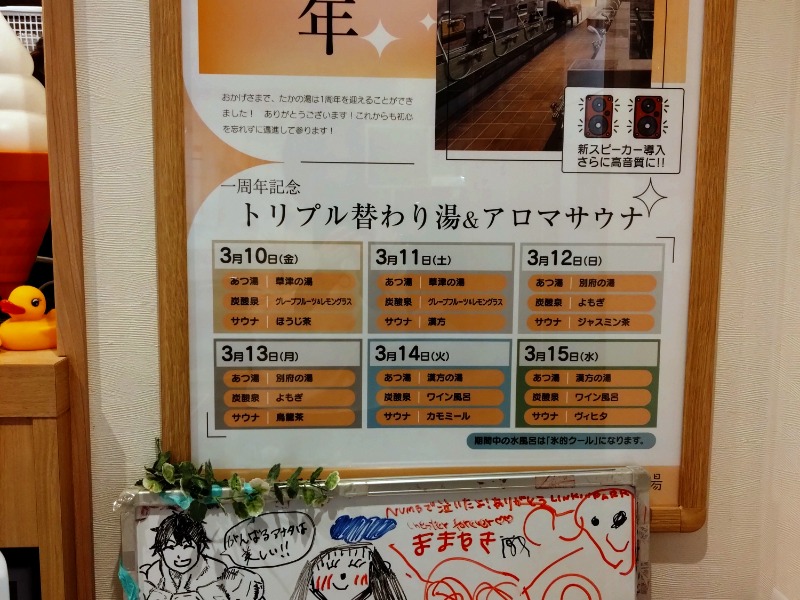 年
おかげさまで、たかの湯は1周年を迎えることができ
ました！ ありがとうございます！これからも初心
を忘れずに邁進して参ります！
新スピーカー導入
さらに高音質に!!
一周年記念
トリプル替わり湯&アロマサウナ
3月10日(金)
あつ湯 草津の湯
炭酸泉 グレープフルーツ&レモングラス
サウナ ほうじ茶
3月11日(土)
あつ湯 草津の湯
炭酸泉 グレープフルーツ&レモングラス
サウナ 漢方
3月12日(日)
あつ湯 別府の湯
炭酸泉 よもぎ
サウナ ジャスミン茶
3月13日(月)
あつ湯 別府の湯
炭酸泉 よもぎ
サウナ 烏龍茶
3月14日(火)
あつ湯 漢方の湯
炭酸泉 ワイン風呂
サウナ カモミール
3月15日(水)
あつ湯 漢方の湯
炭酸泉 ワイン風呂
サウナ ヴィヒタ
期間中の水風呂は「氷的クール」になります。
湯
がんばるアナタは
美しい!!